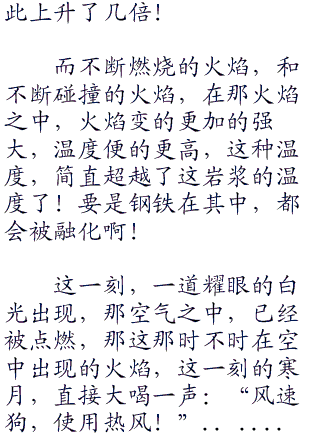 此上升了几倍！
而不断燃烧的火焰，和
不断碰撞的火焰，在那火焰
之中，火焰变的更加的强
大，温度便的更高，这种温
度，简直超越了这岩浆的温
度了！要是钢铁在其中，都
会被融化啊！
这一刻，一道耀眼的白
光出现，那空气之中，已经
被点燃，那这那时不时在空
中出现的火焰，这一刻的寒
月，直接大喝一声：“风速
狗，使用热风！”．．．．．．